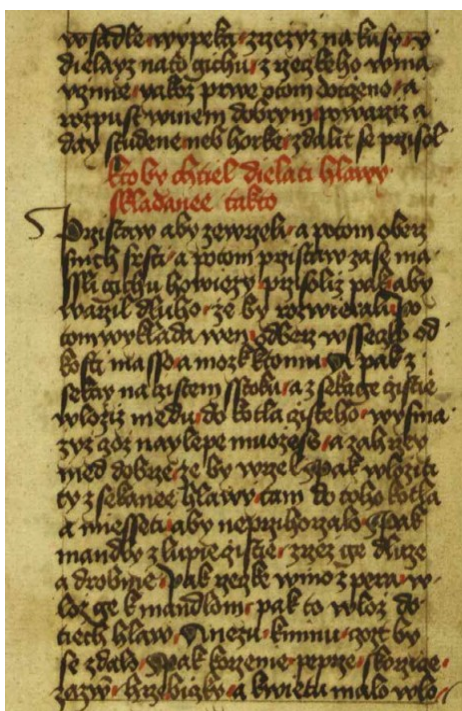 w sadle wypekti zrzezyz na kusy. v
dielayz nato gichu. z rzezkeho wina
vznie. yakoz prwe otom dotczeno. a
rozpust winem dobrym. powarziz a
day studene neb horke. zdalit se przisol
kto by chtiel dielati hlawy
skladanee takto
Przistaw aby zewrzeli. a potom oberz
snich srsti. a potom przistaw zase ma
gichu howiezy. przisoliz pak. aby
warzil dluho. ze by rozwierali. Po
tom wyklada wen. zberz wssecko od
kosti masso. a mozk ktomu. A pak z
sekay na gistem sstoku. a z sekage gistie
wloziz medu. do kotla gisteho. wysma
zyz goz naylepe muozess. a zahrzey
med dobrze. ze by wrzel. Pak wloziti
ty z sekanee hlawy. tam do toho kotla
a miesseti. aby neprzihorzalo. Pak
mandly zlupie gistie. zrzez ge dluze
a drobnie. Pak rzezke wino z pera. w
loz ge k mandlom. pak to wloz do
tiech hlaw. Anezu. kminu. gozt by
se zdalo. Pak korzenie. peprze. skorzige.
zazw. hrzebiczky. a kwietu malo wlo